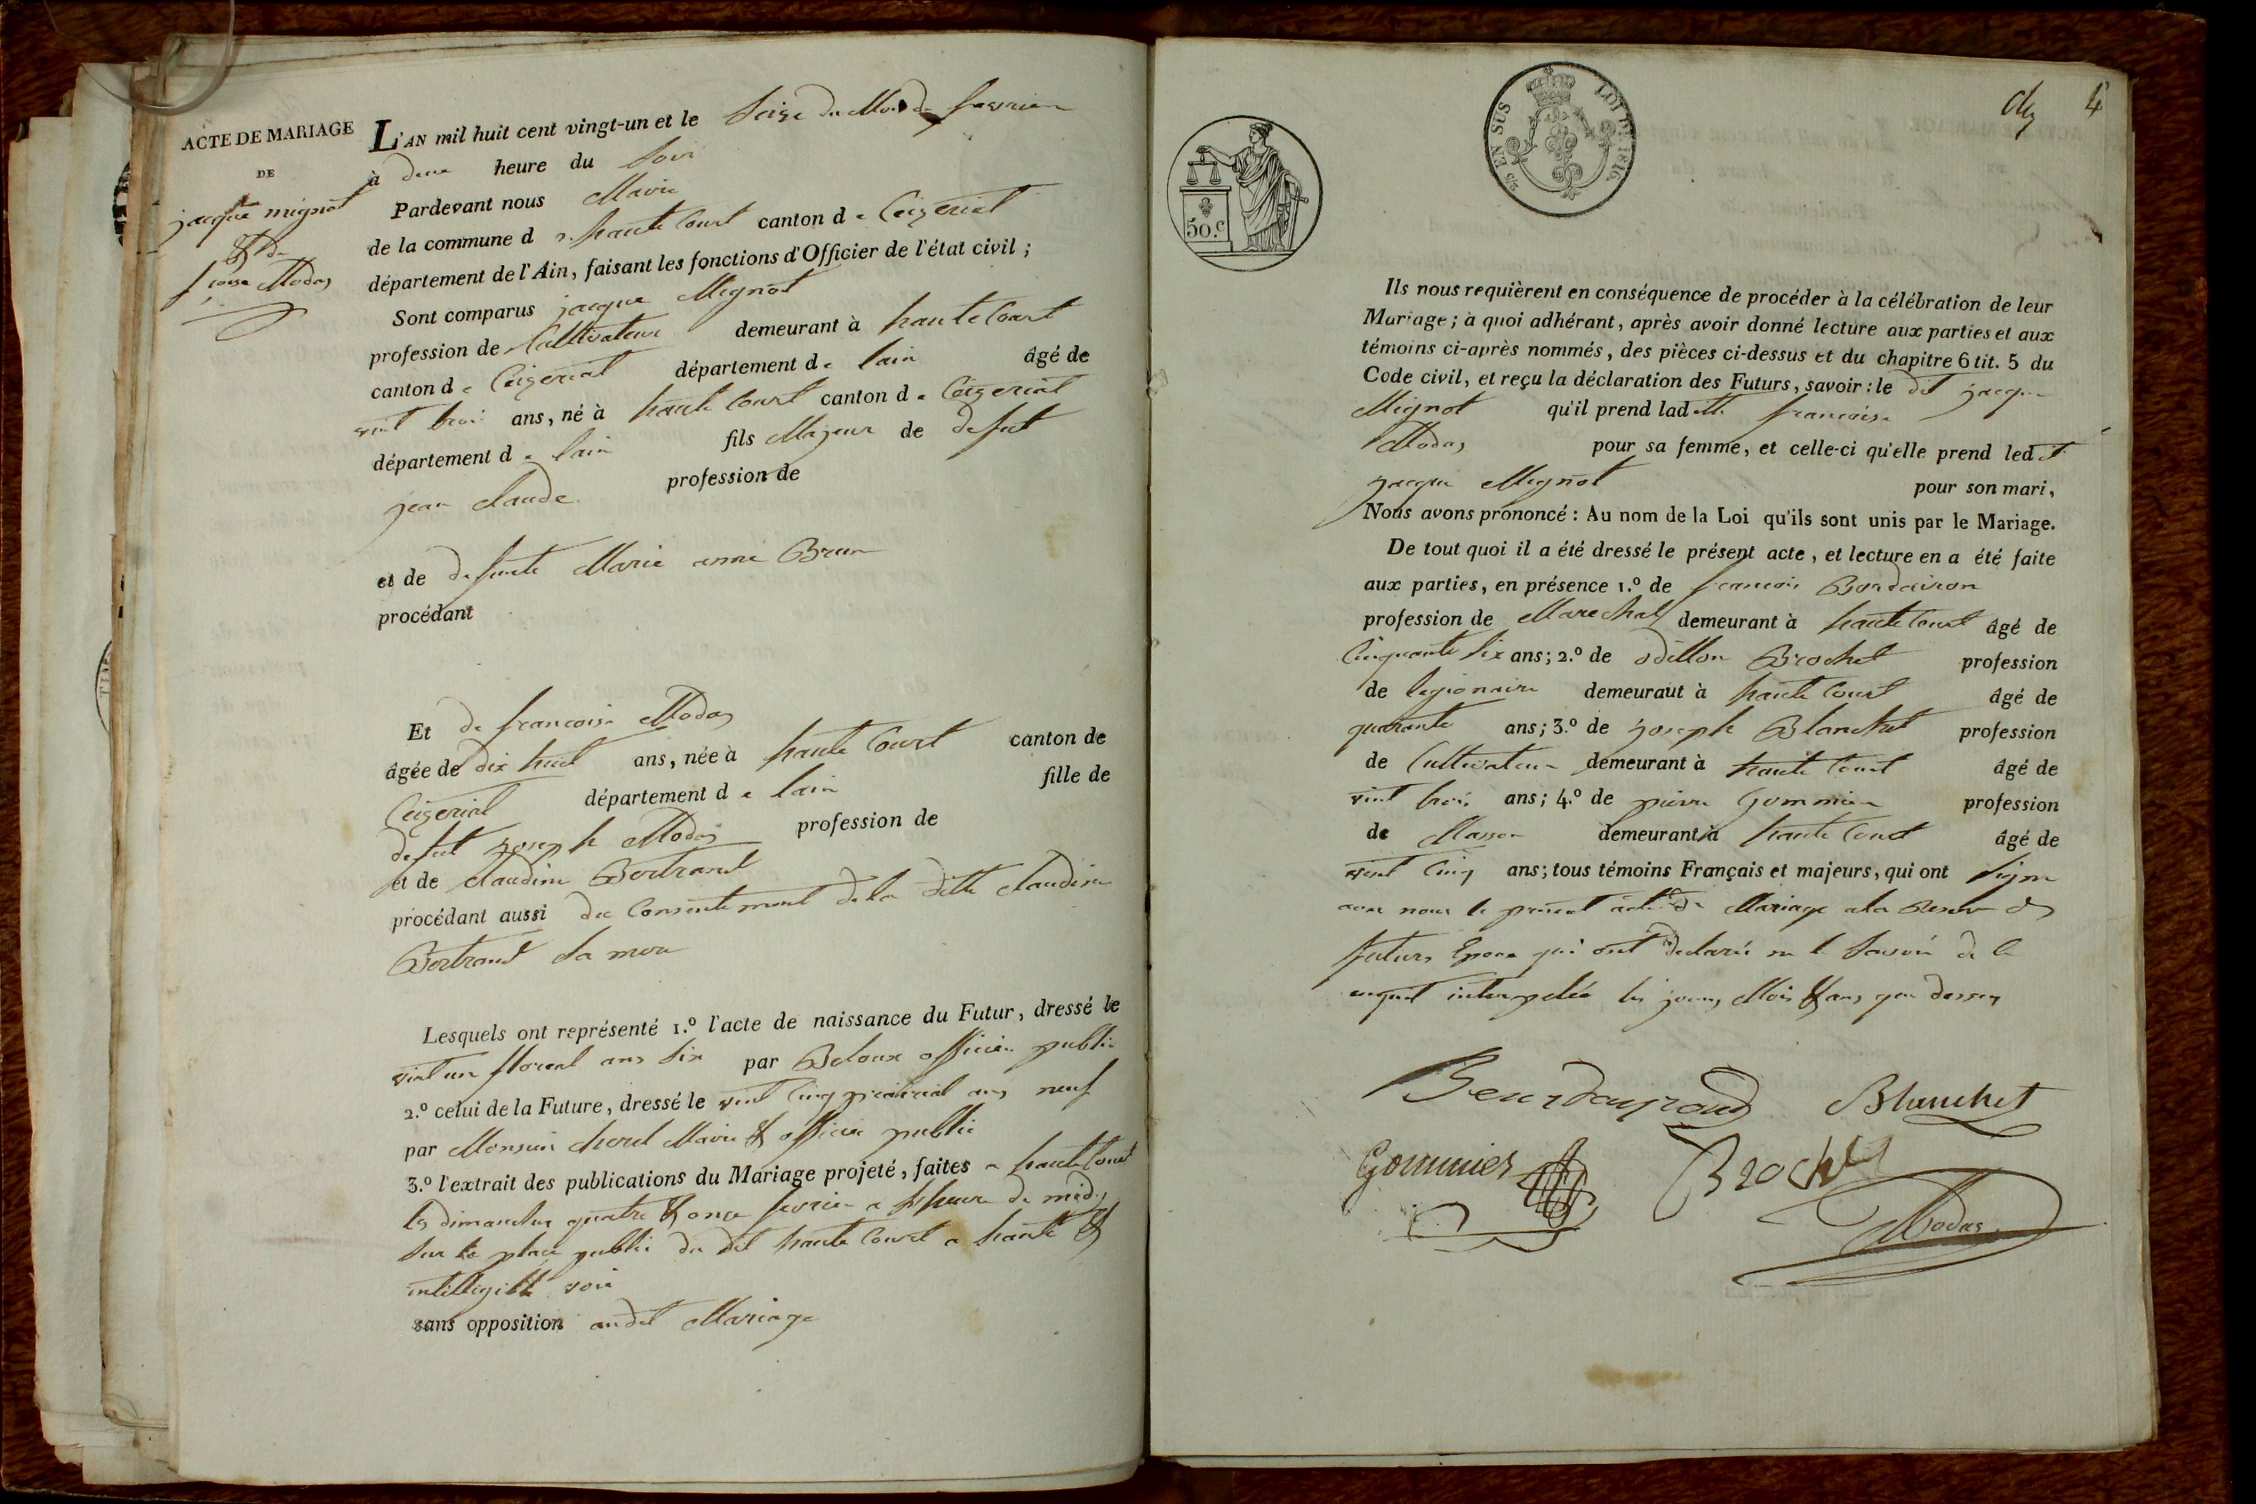 ACTE DE MARIAGE
DE
jacque mignot
& de
f coise Modas
L'AN mil huit cent vingt-un et le Seize du Mois de fevrier
à deux heure du Soir
Pardevant nous Maire
de la commune d e haute Court canton d e Ceizeriat
département de l'Ain, faisant les fonctions d'Officier de l'état civil ;
Sont comparus jacque Mignot
profession de Cultivateur demeurant à haute Court
canton d e Ceizeriat département d e lain âgé de
vint trois ans, né à haute Court canton d e Ceizeriat
département d e lain fils Majeur de defut
jean claude profession de
et de defunte Marie anne Brun
procédant
Et de francoise Modas
âgée de dix huit ans, née à haute Court canton de
Ceizeriat département d e lain fille de
defut joseph Modas profession de
et de claudine Bertrand
procédant aussi du Consentement de la ditte claudine
Bertrand sa mere
Lesquels ont représenté 1.º l'acte de naissance du Futur, dressé le
vint un floreal ans six par Beloux officier public
2.º celui de la Future, dressé le vint Cinq prairial ans neuf
par Monsieur cherel Maire & officier public
3.º l'extrait des publications du Mariage projeté, faites a haute Court
les dimanches quatre & onze fevrier a heure de midy
sur la place public du dit haute Court a haute &
intelligible voix
sans opposition audit Mariage
4
50.c
5/5 EN SUS LOI DE 1816.
Ils nous requièrent en conséquence de procéder à la célébration de leur
Mariage ; à quoi adhérant, après avoir donné lecture aux parties et aux
témoins ci-après nommés, des pièces ci-dessus et du chapitre 6 tit. 5 du
Code civil, et reçu la déclaration des Futurs, savoir : le dit jacque
Mignot qu'il prend lad itte francoise
Modas pour sa femme, et celle-ci qu'elle prend led it
jacque Mignot pour son mari,
Nous avons prononcé : Au nom de la Loi qu'ils sont unis par le Mariage.
De tout quoi il a été dressé le présent acte, et lecture en a été faite
aux parties, en présence 1.º de francois Bourdeiron
profession de Marechal demeurant à haute Court âgé de
Cinquante six ans ; 2.º de odillon Brochet profession
de legionaire demeurant à haute Court âgé de
quarante ans ; 3.º de joseph Blanchet profession
de Cultivateur demeurant à haute Court âgé de
vint trois ans ; 4.º de pierre Gommier profession
de Masson demeurant à haute Court âgé de
vint Cinq ans ; tous témoins Français et majeurs, qui ont signe
avec nous le present acte de Mariage a la Reserve des
futurs Epoux qui ont declaré ne le savoir de ce
enquit interpelée les jours, Mois & ans que dessus
Bourdayraud Blanchet
Gommier Brochet
Modas